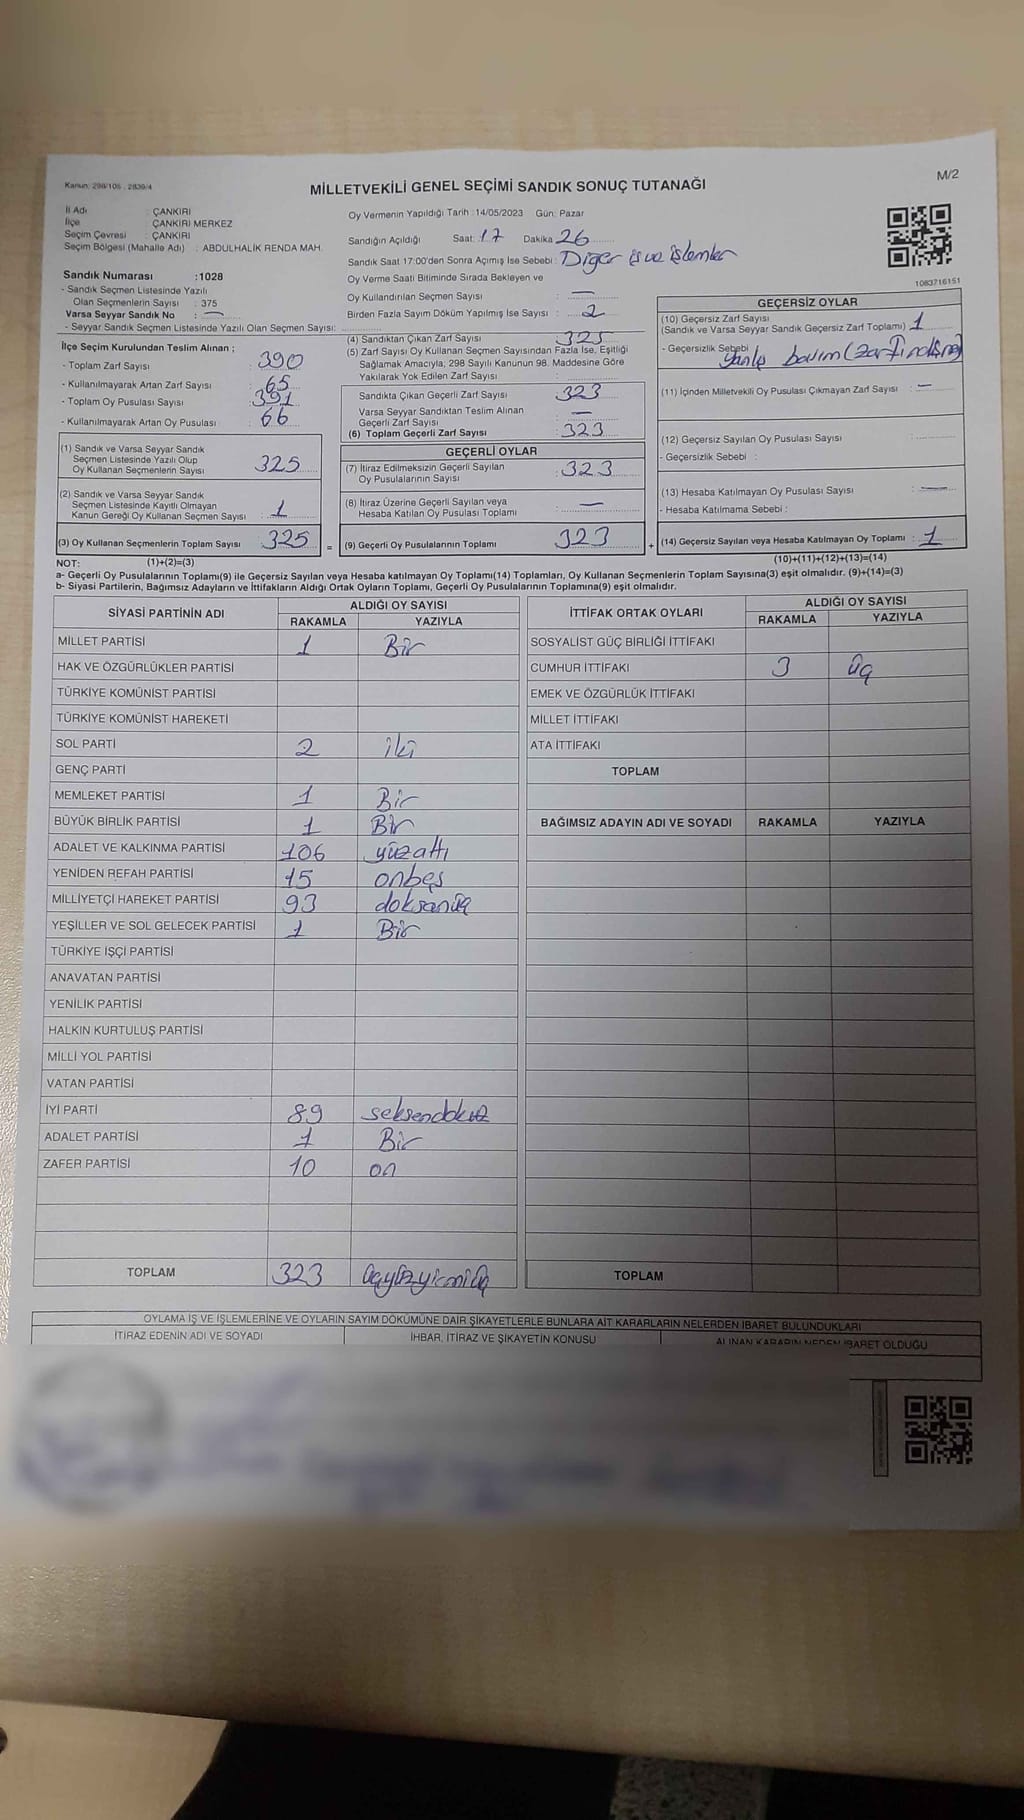 Kanun: 298/105 . 2839/4
MİLLETVEKİLİ GENEL SEÇİMİ SANDIK SONUÇ TUTANAĞI
M/2
İl Adı : ÇANKIRI
İlçe : ÇANKIRI MERKEZ
Seçim Çevresi : ÇANKIRI
Seçim Bölgesi (Mahalle Adı) : ABDULHALİK RENDA MAH.
Oy Vermenin Yapıldığı Tarih : 14/05/2023 Gün: Pazar
Sandığın Açıldığı Saat: 17 Dakika 26
Sandık Saat 17:00'den Sonra Açımış İse Sebebi : Diğer iş ve işlemler
Oy Verme Saati Bitiminde Sırada Bekleyen ve
Oy Kullandırılan Seçmen Sayısı : —
Birden Fazla Sayım Döküm Yapılmış İse Sayısı : 2
1083716151
Sandık Numarası : 1028
- Sandık Seçmen Listesinde Yazılı
Olan Seçmenlerin Sayısı : 375
Varsa Seyyar Sandık No : —
- Seyyar Sandık Seçmen Listesinde Yazılı Olan Seçmen Sayısı:
İlçe Seçim Kurulundan Teslim Alınan ;
- Toplam Zarf Sayısı : 390
- Kullanılmayarak Artan Zarf Sayısı : 65
- Toplam Oy Pusulası Sayısı : 391
- Kullanılmayarak Artan Oy Pusulası : 66
(1) Sandık ve Varsa Seyyar Sandık
Seçmen Listesinde Yazılı Olup
Oy Kullanan Seçmenlerin Sayısı : 325
(2) Sandık ve Varsa Seyyar Sandık
Seçmen Listesinde Kayıtlı Olmayan
Kanun Gereği Oy Kullanan Seçmen Sayısı : 1
(3) Oy Kullanan Seçmenlerin Toplam Sayısı : 325
(4) Sandıktan Çıkan Zarf Sayısı : 325
(5) Zarf Sayısı Oy Kullanan Seçmen Sayısından Fazla İse, Eşitliği
Sağlamak Amacıyla; 298 Sayılı Kanunun 98. Maddesine Göre
Yakılarak Yok Edilen Zarf Sayısı :
Sandıkta Çıkan Geçerli Zarf Sayısı : 323
Varsa Seyyar Sandıktan Teslim Alınan
Geçerli Zarf Sayısı : —
(6) Toplam Geçerli Zarf Sayısı : 323
GEÇERLİ OYLAR
(7) İtiraz Edilmeksizin Geçerli Sayılan
Oy Pusulalarının Sayısı : 323
(8) İtiraz Üzerine Geçerli Sayılan veya
Hesaba Katılan Oy Pusulası Toplamı : —
= (9) Geçerli Oy Pusulalarının Toplamı : 323
GEÇERSİZ OYLAR
(10) Geçersiz Zarf Sayısı
(Sandık ve Varsa Seyyar Sandık Geçersiz Zarf Toplamı) : 1
- Geçersizlik Sebebi : Yanlış
(11) İçinden Milletvekili Oy Pusulası Çıkmayan Zarf Sayısı : —
(12) Geçersiz Sayılan Oy Pusulası Sayısı :
- Geçersizlik Sebebi :
(13) Hesaba Katılmayan Oy Pusulası Sayısı : —
- Hesaba Katılmama Sebebi :
+ (14) Geçersiz Sayılan veya Hesaba Katılmayan Oy Toplamı : 1
NOT: (1)+(2)=(3)
(10)+(11)+(12)+(13)=(14)
a- Geçerli Oy Pusulalarının Toplamı(9) ile Geçersiz Sayılan veya Hesaba katılmayan Oy Toplamı(14) Toplamları, Oy Kullanan Seçmenlerin Toplam Sayısına(3) eşit olmalıdır. (9)+(14)=(3)
b- Siyasi Partilerin, Bağımsız Adayların ve İttifakların Aldığı Ortak Oyların Toplamı, Geçerli Oy Pusulalarının Toplamına(9) eşit olmalıdır.
SİYASİ PARTİNİN ADI ALDIĞI OY SAYISI
RAKAMLA YAZIYLA
MİLLET PARTİSİ 1 Bir
HAK VE ÖZGÜRLÜKLER PARTİSİ
TÜRKİYE KOMÜNİST PARTİSİ
TÜRKİYE KOMÜNİST HAREKETİ
SOL PARTİ 2 iki
GENÇ PARTİ
MEMLEKET PARTİSİ 1 Bir
BÜYÜK BİRLİK PARTİSİ 1 Bir
ADALET VE KALKINMA PARTİSİ 106 yüzaltı
YENİDEN REFAH PARTİSİ 15 onbeş
MİLLİYETÇİ HAREKET PARTİSİ 93 doksanüç
YEŞİLLER VE SOL GELECEK PARTİSİ 1 Bir
TÜRKİYE İŞÇİ PARTİSİ
ANAVATAN PARTİSİ
YENİLİK PARTİSİ
HALKIN KURTULUŞ PARTİSİ
MİLLİ YOL PARTİSİ
VATAN PARTİSİ
İYİ PARTİ 89 seksendokuz
ADALET PARTİSİ 1 Bir
ZAFER PARTİSİ 10 on
TOPLAM 323 üçyüzyirmiüç
İTTİFAK ORTAK OYLARI ALDIĞI OY SAYISI
RAKAMLA YAZIYLA
SOSYALİST GÜÇ BİRLİĞİ İTTİFAKI
CUMHUR İTTİFAKI 3 üç
EMEK VE ÖZGÜRLÜK İTTİFAKI
MİLLET İTTİFAKI
ATA İTTİFAKI
TOPLAM
BAĞIMSIZ ADAYIN ADI VE SOYADI RAKAMLA YAZIYLA
TOPLAM
OYLAMA İŞ VE İŞLEMLERİNE VE OYLARIN SAYIM DÖKÜMÜNE DAİR ŞİKAYETLERLE BUNLARA AİT KARARLARIN NELERDEN İBARET BULUNDUKLARI
İTİRAZ EDENİN ADI VE SOYADI İHBAR, İTİRAZ VE ŞİKAYETİN KONUSU ALINAN KARARIN NEDEN İBARET OLDUĞU